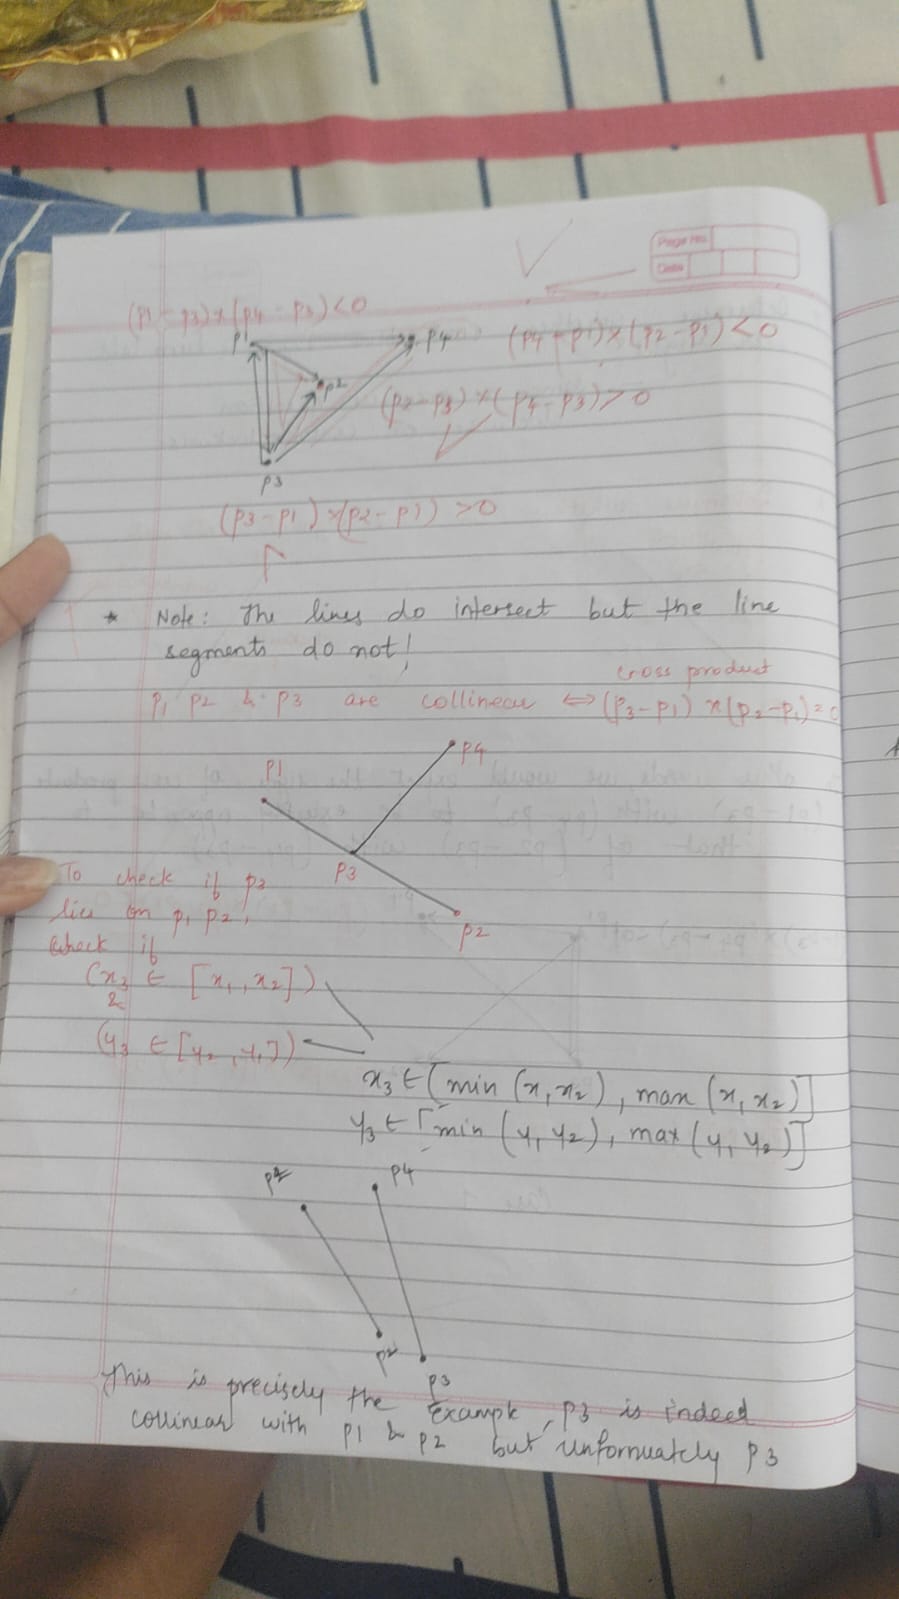 Page No.
Date
(p1 - p3) x (p4 - p3) < 0
p1
p4
(p4 - p1) x (p2 - p1) < 0
p2
(p2 - p3) x (p4 - p3) > 0
p3
(p3 - p1) x (p2 - p1) > 0
* Note: The lines do intersect but the line
segments do not!
cross product
p1 p2 & p3 are collinear ⇔ (p3 - p1) x (p2 - p1) = 0
p4
p1
p3
p2
To check if p3
lies on p1 p2,
check if
(x3 ∈ [x1, x2])
&
(y3 ∈ [y2, y1])
x3 ∈ [min (x1 x2), max (x1 x2)]
y3 ∈ [min (y1 y2), max (y1 y2)]
p4
p2
p3
This is precisely the example, p3 is indeed
collinear with p1 & p2 but unfornuately p3